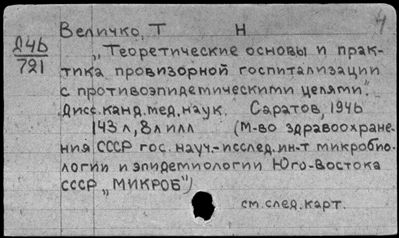 4
Д46
721
Величко, Т Н
„Теоретические основы и прак-
тика провизорной госпитализации
с противоэпидемическими целями".
Дисс. канд. мед. наук. Саратов, 1946
143 л, 8 л илл (М-во здравоохране-
ния СССР гос. науч.-исслед. ин-т микробио-
логии и эпидемиологии Юго-Востока
СССР „МИКРОБ")
см. след. карт.